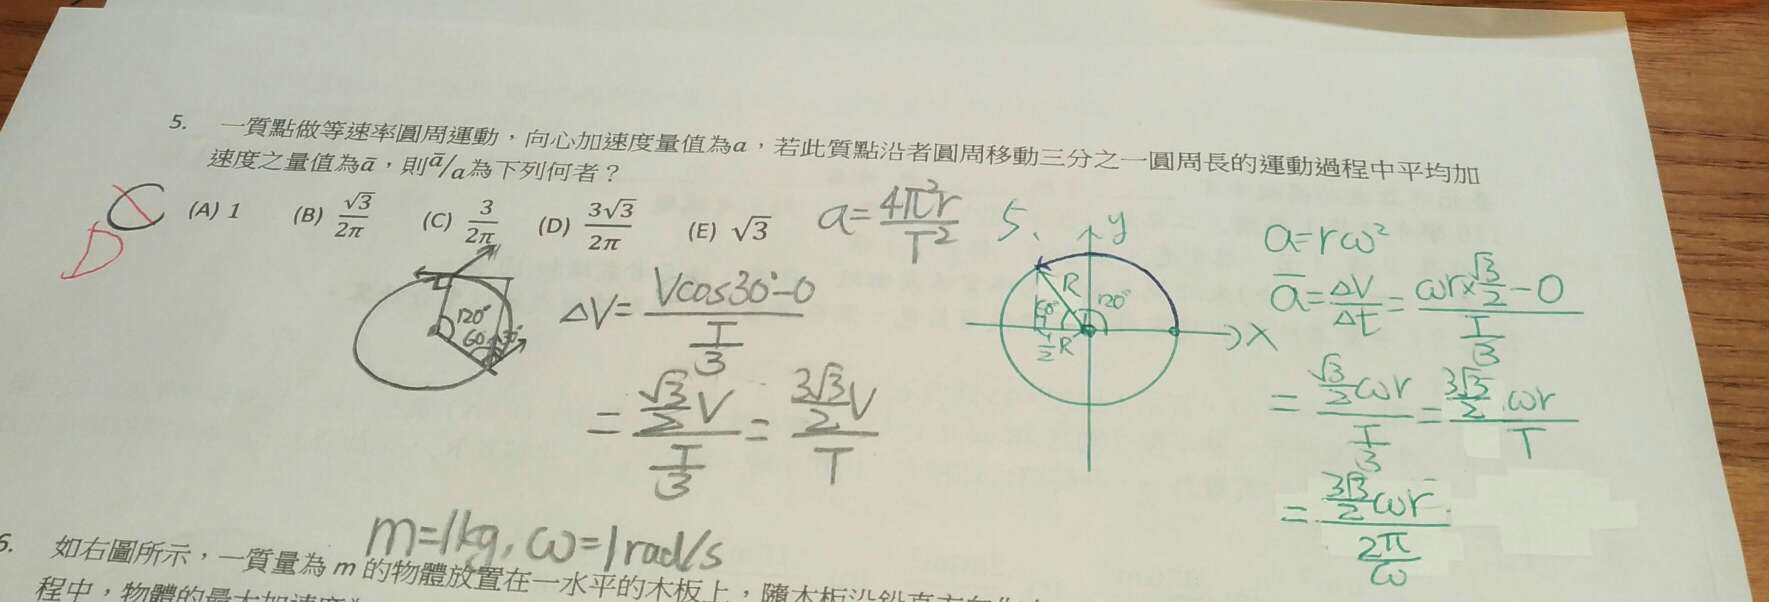 5. 一質點做等速率圓周運動，向心加速度量值為a，若此質點沿者圓周移動三分之一圓周長的運動過程中平均加
速度之量值為ā，則ā/a為下列何者？
C
D
(A) 1 (B) √3/2π (C) 3/2π (D) 3√3/2π (E) √3
a=4π²r/T²
120°
60°
30°
ΔV=(Vcos30°-0)/(T/3)
=(√3/2 V)/(T/3)=(3√3/2 V)/T
5、
y
R
120°
60°
1/2 R
x
a=rω²
ā=ΔV/Δt=(ωr×√3/2-0)/(T/3)
=(√3/2 ωr)/(T/3)=(3√3/2 ωr)/T
=(3√3/2 ωr)/(2π/ω)
m=1kg, ω=1rad/s
6. 如右圖所示，一質量為m的物體放置在一水平的木板上，隨木板沿鉛直方向
程中，物體的最大加速度